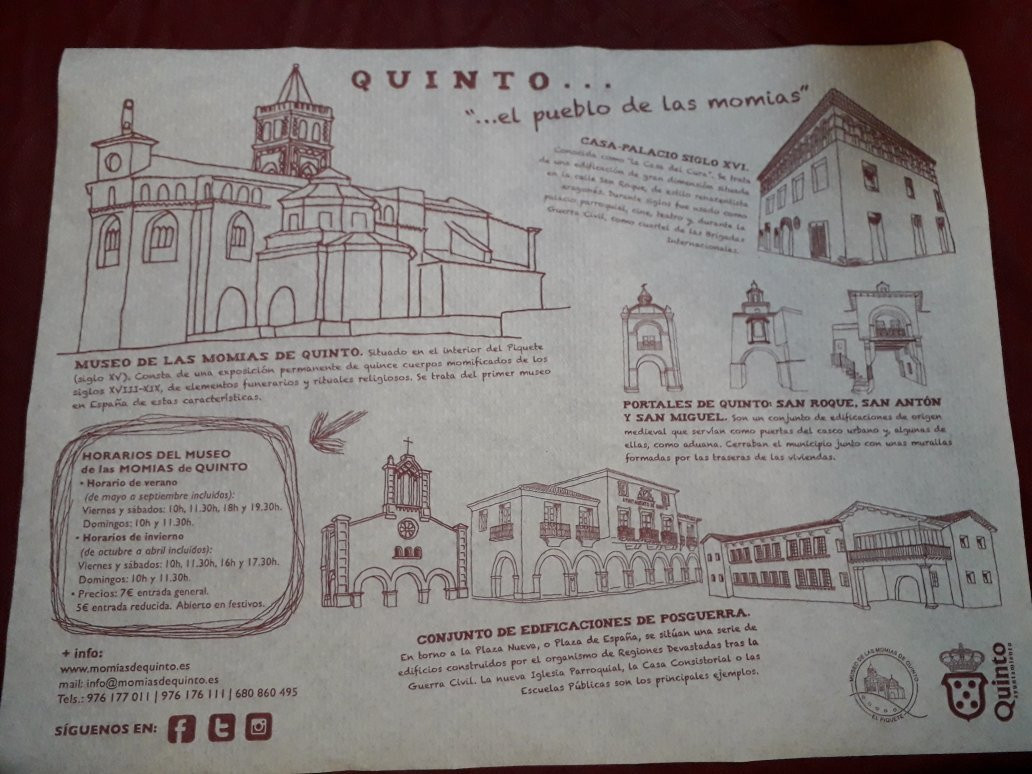 QUINTO...
"...el pueblo de las momias"
CASA-PALACIO SIGLO XVI.
Conocida como "la Casa del Cura". Se trata
de una edificación de gran dimensión situada
en la calle San Roque, de estilo renacentista
aragonés. Durante siglos fue usado como
palacio parroquial, cine, teatro y, durante la
Guerra Civil, como cuartel de las Brigadas
Internacionales.
MUSEO DE LAS MOMIAS DE QUINTO. Situado en el interior del Piquete
(siglo XV). Consta de una exposición permanente de quince cuerpos momificados de los
siglos XVIII-XIX, de elementos funerarios y rituales religiosos. Se trata del primer museo
en España de estas características.
PORTALES DE QUINTO: SAN ROQUE, SAN ANTÓN
Y SAN MIGUEL. Son un conjunto de edificaciones de origen
medieval que servían como puertas del casco urbano y, algunas de
ellas, como aduana. Cerraban el municipio junto con unas murallas
formadas por las traseras de las viviendas.
HORARIOS DEL MUSEO
de las MOMIAS de QUINTO
• Horario de verano
(de mayo a septiembre incluidos):
Viernes y sábados: 10h, 11.30h, 18h y 19.30h.
Domingos: 10h y 11.30h.
• Horarios de invierno
(de octubre a abril incluidos):
Viernes y sábados: 10h, 11.30h, 16h y 17.30h.
Domingos: 10h y 11.30h.
• Precios: 7€ entrada general.
5€ entrada reducida. Abierto en festivos.
CONJUNTO DE EDIFICACIONES DE POSGUERRA.
En torno a la Plaza Nueva, o Plaza de España, se sitúan una serie de
edificios construidos por el organismo de Regiones Devastadas tras la
Guerra Civil. La nueva Iglesia Parroquial, la Casa Consistorial o las
Escuelas Públicas son los principales ejemplos.
+ info:
www.momiasdequinto.es
mail: info@momiasdequinto.es
Tels.: 976 177 011 | 976 176 111 | 680 860 495
SÍGUENOS EN:
MUSEO DE LAS MOMIAS DE QUINTO
EL PIQUETE
Quinto
ayuntamiento